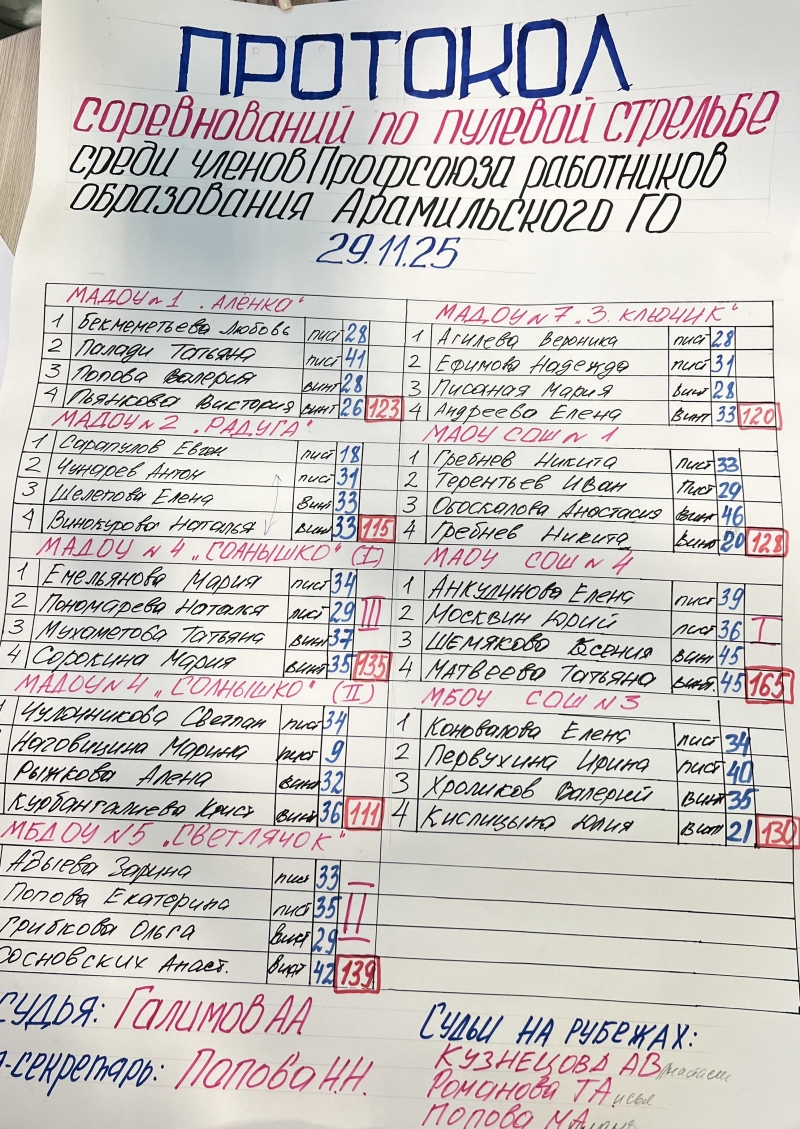 ПРОТОКОЛ
соревнований по пулевой стрельбе
среди членов Профсоюза работников
образования Арамильского ГО
29.11.25
МАДОУ №1 „Алёнка“
1 Бекметьева Любовь пист 28
2 Палади Татьяна пист 41
3 Попова Валерия винт 28
4 Пьянкова Виктория винт 26 123
МАДОУ №2 „Радуга“
1 Сарапулов Евген пист 18
2 Чунарев Антон пист 31
3 Шелепова Елена винт 33
4 Винокурова Наталья винт 33 115
МАДОУ №4 „Солнышко“ (I)
1 Емельянова Мария пист 34
2 Пономарева Наталья пист 29 III
3 Мухаметова Татьяна винт 37
4 Сорокина Мария винт 35 135
МАДОУ №4 „Солнышко“ (II)
Чулочникова Светлан пист 34
Наговицина Марина пист 9
Рыжкова Алена винт 32
Курбангалиева Крист винт 36 111
МБДОУ №5 „Светлячок“
Азыева Зарина пист 33
Попова Екатерина пист 35 II
Грибкова Ольга винт 29
Сосновских Анаст. винт 42 139
МАДОУ №7 „З. ключик“
1 Агилева Вероника пист 28
2 Ефимова Надежда пист 31
3 Писаная Мария винт 28
4 Андреева Елена винт 33 120
МАОУ СОШ №1
1 Гребнев Никита пист 33
2 Терентьев Иван пист 29
3 Обоскалова Анастасия винт 46
4 Гребнев Никита винт 20 128
МАОУ СОШ №4
1 Анкудинова Елена пист 39
2 Москвин Юрий пист 36 I
3 Шемякова Ксения винт 45
4 Матвеева Татьяна винт. 45 165
МБОУ СОШ №3
1 Коновалова Елена пист 34
2 Первухина Ирина пист 40
3 Хроликов Валерий винт 35
4 Кислицына Юлия винт 21 130
судья: Галимов АА
-секретарь: Попова Н.Н.
Судьи на рубежах:
Кузнецова АВ
Романова ТА
Попова МА